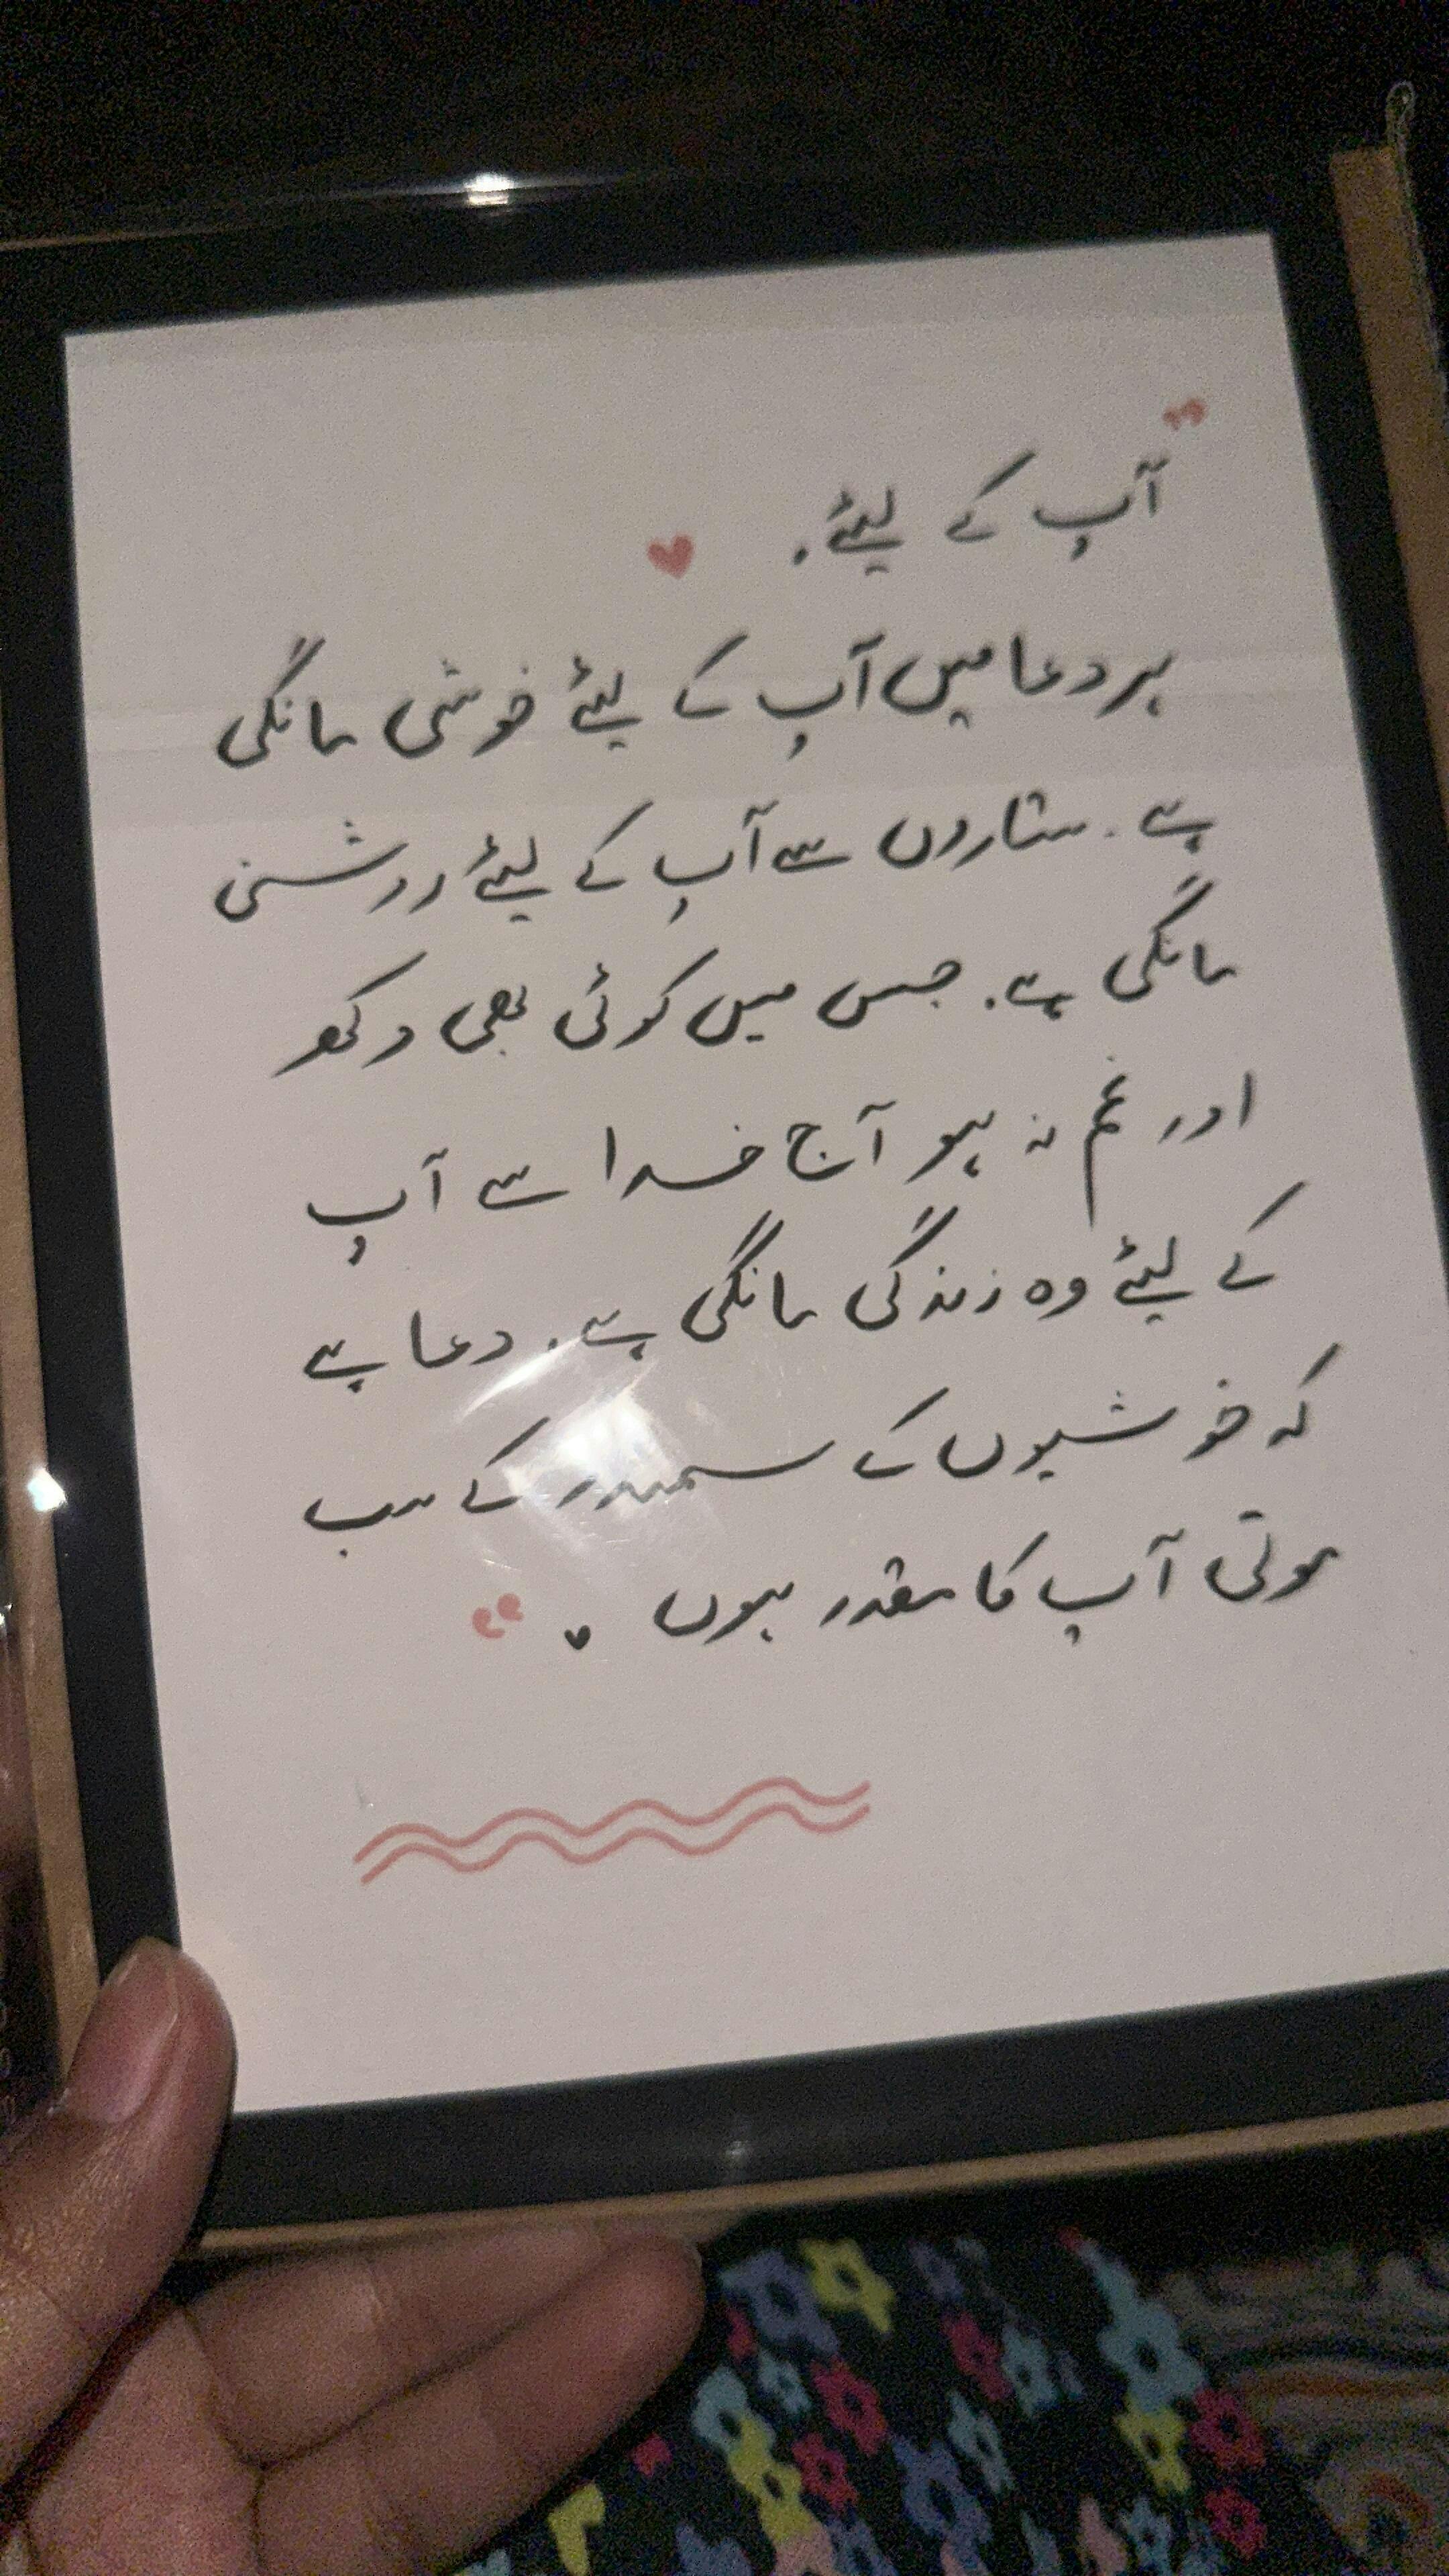 "آپ کے لیئے.
ہر دعا میں آپ کے لیئے خوشی مانگی
ہے. ستاروں سے آپ کے لیئے روشنی
مانگی ہے. جس میں کوئی بھی دکھ
اور غم نہ ہو آج خدا سے آپ
کے لیئے وہ زندگی مانگی ہے. دعا ہے
کہ خوشیوں کے سمندر کے سب
موتی آپ کا مقدر ہوں."